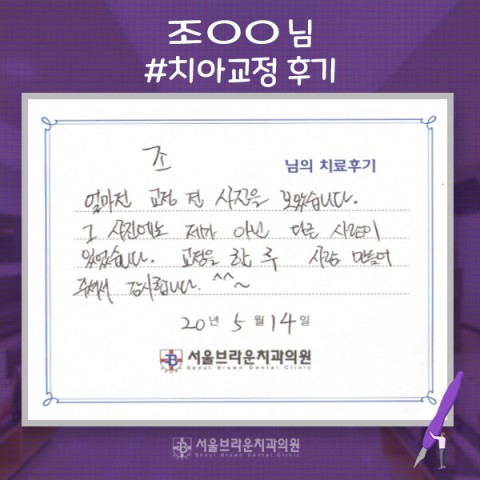 조○○ 님
#치아교정 후기
조 님의 치료후기
얼마전 교정 전 사진을 보았습니다.
그 사진에는 제가 아닌 다른 사람이
있었습니다. 교정을 한 후 사람 만들어
주셔서 감사합니다. ^^~
20년 5월 14일
B 서울브라운치과의원
Seoul Brown Dental Clinic
B 서울브라운치과의원
Seoul Brown Dental Clinic